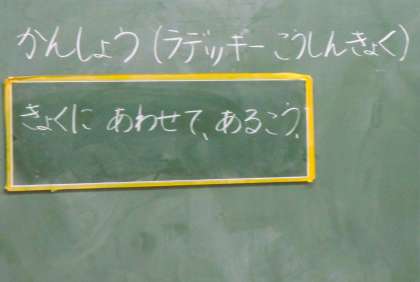 かんしょう(ラデッキーこうしんきょく)
きょくに あわせて、あるこう。